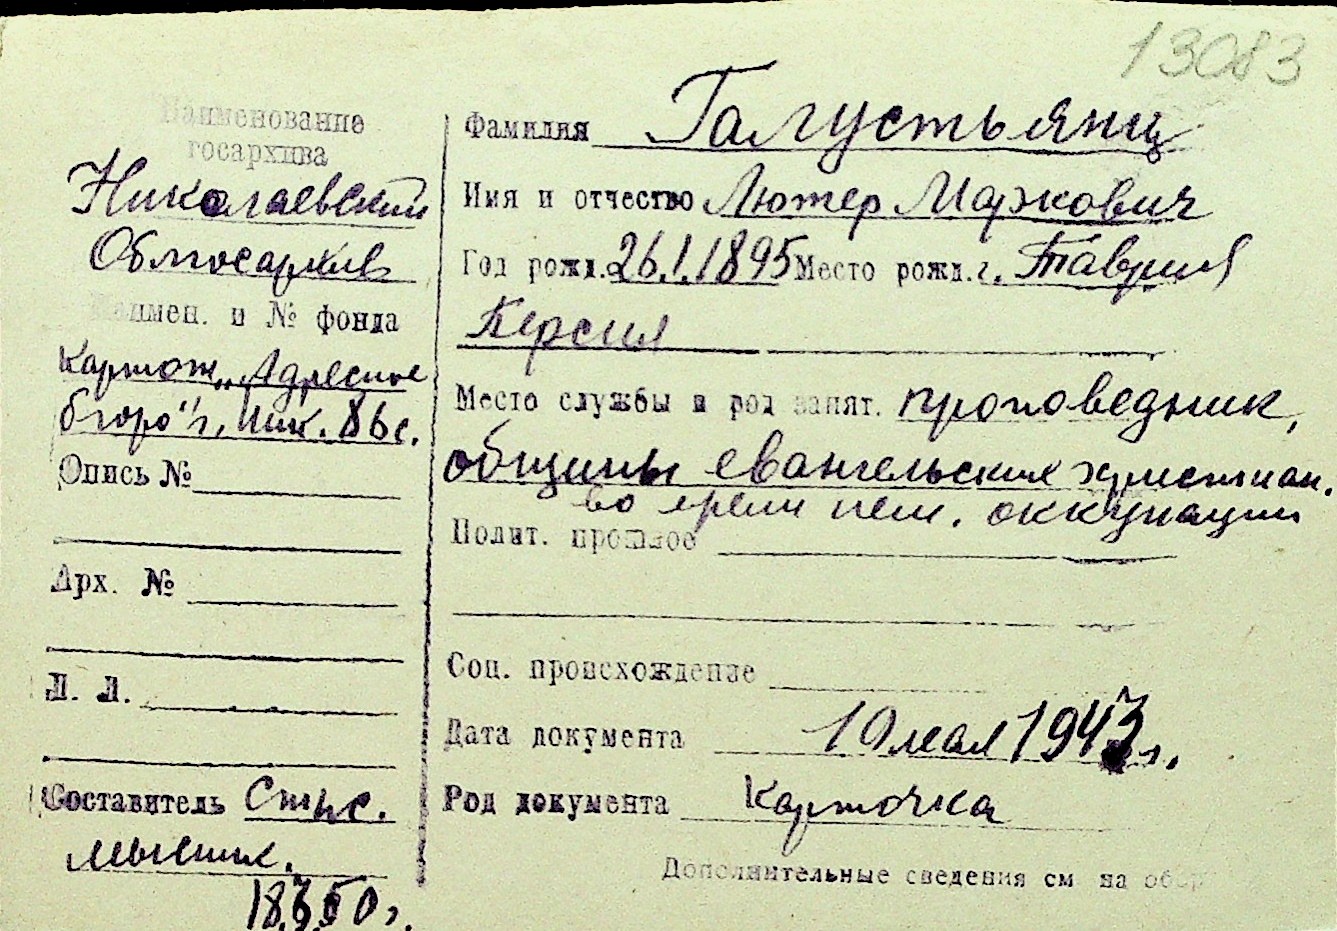 13083
Наименование
госархива
Николаевский
Облгосархив
Наимен. и № фонда
Картот. „Адресное
бюро" г. Ник. 86с.
Опись №
Арх. №
Л. Л.
Составитель
18. 50 г.
Фамилия Галустьянц
Имя и отчество Лютер Маркович
Год рожд. 26.1.1895 Место рожд. г. Таврия
Персия
Место службы и род занят. проповедник,
общины евангельских христиан.
во время нем. оккупации
Полит. прошлое
Соц. происхождение
Дата документа 19 мая 1943 г.
Род документа Карточка
Дополнительные сведения см на обор